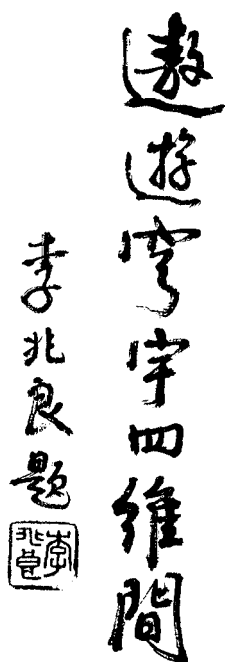 遨遊穹宇四維間
李兆良題
李兆良